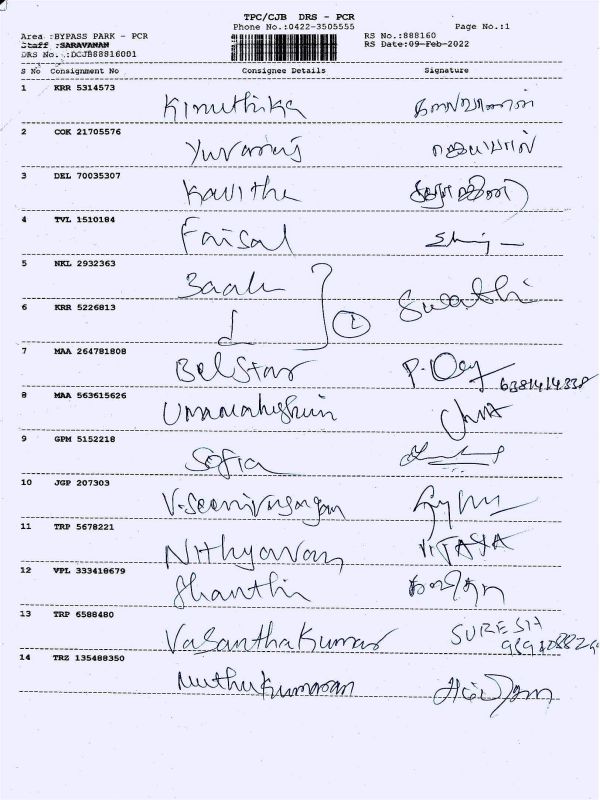 TPC/CJB DRS - PCR
Phone No.:0422-3505555 Page No.:1
Area :BYPASS PARK - PCR RS No.:888160
Staff :SARAVANAN RS Date:09-Feb-2022
DRS No. :DCJB88816001
S No Consignment No Consignee Details Signature
1 KRR 5314573 Kiruthika
2 COK 21705576
3 DEL 70035307 Kavitha
4 TVL 1510184 Faisal
5 NKL 2932363 Swathi
6 KRR 5226813
7 MAA 264781808 BelStar
8 MAA 563615626 Umamaheshwari Uma
9 GPM 5152218 Sofia
10 JGP 207303 V.Seenivasagan
11 TRP 5678221 Nithyavan V.JAYA
12 VPL 333418679 Shanthi
13 TRP 6588480 VasanthaKumar SURESH
14 TRZ 135488350 Muthukumaran